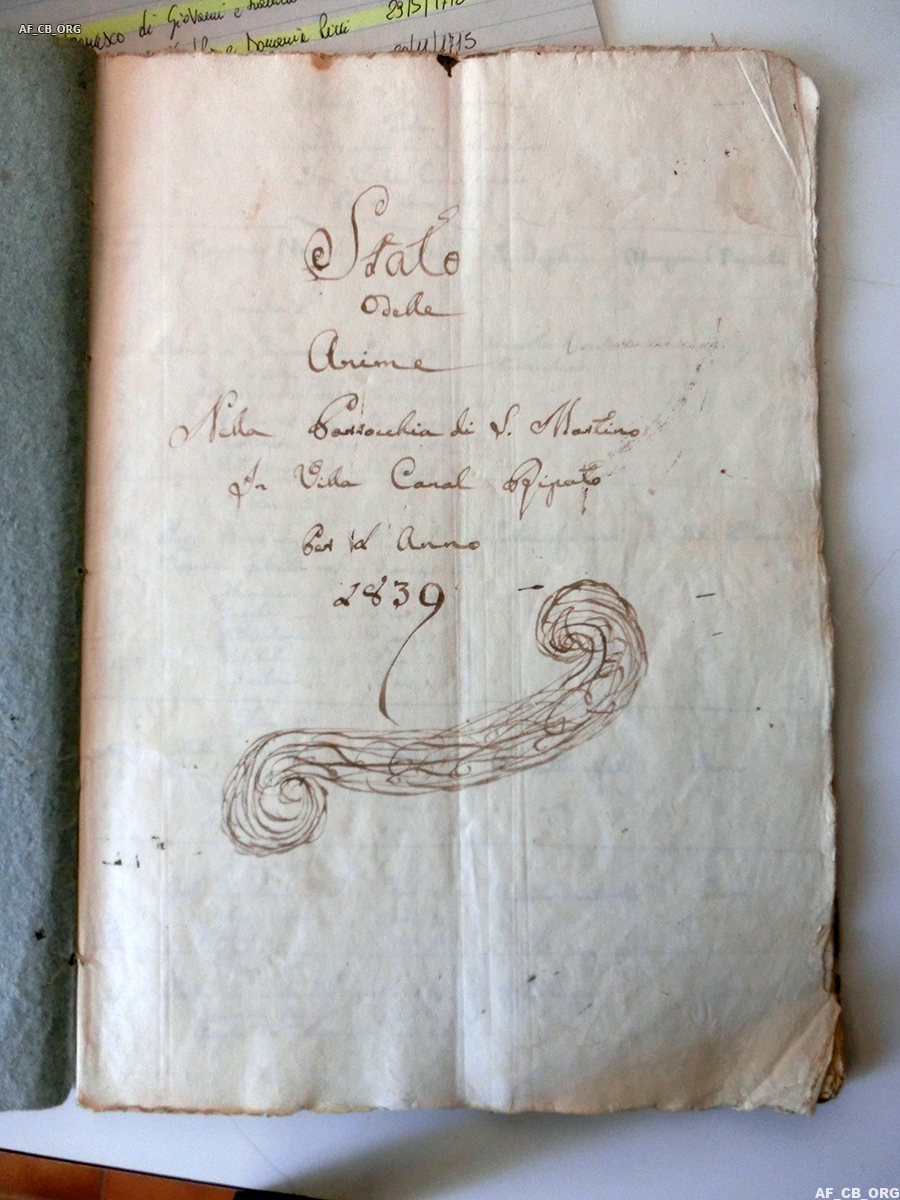 AF_CB_ORG
di Giovanni e 29/5/1715
e Domenica
Stato
Delle
Anime
Nella Parrocchia di S. Martino
In Villa Canal Ripato
Per l' Anno
1839
AF_CB_ORG